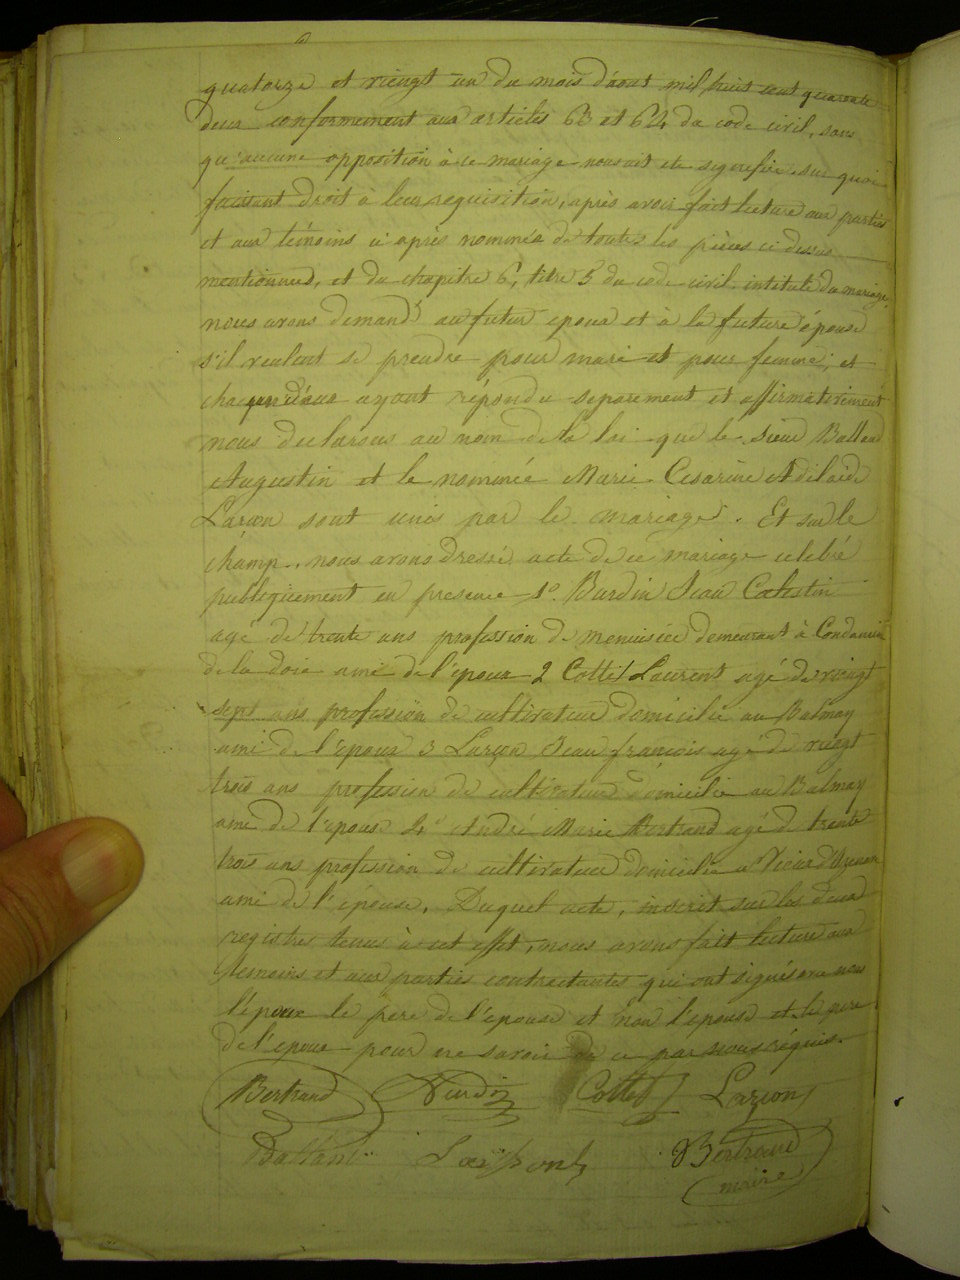 quatorze et vingt un du mois d'aout mil huit cent quarante
deux conformement aux articles 63 et 64 du code civil, sans
qu'aucune opposition à ce mariage nous ait ete signifiée. sur quoi
faisant droit à leur requisition, après avoir fait lecture aux parties
et aux témoins ci après nommés de toutes les pièces ci dessus
mentionnes, et du chapitre 6, titre 5 du code civil intitulé du mariage,
nous avons demandé au futur epoux et à la future épouse
s'il veulent se prendre pour mari et pour femme, et
chaqun d'eux ayant répondu separement et affirmativement
nous declarons au nom de la loi que le sieur Balland
Augustin et le nommée Marie Cesarine Adelaide
Larçon sont unis par le mariage. Et sur le
champ, nous avons dressé acte de ce mariage celebré
publiquement en presence 1º. Burdin Jean Celestin
agé de trente ans profession de menuisier demeurant à Condamine
de la doie ami de l'epoux 2 Collet Laurent agé de vingt
sept ans profession de cultivateur domicilié au Balmay
ami de l'epoux 3 Larçon Jean françois agé de vingt
trois ans profession de cultivateur domicilié au Balmay
ami de l'epoux 4º André Marie Bertrand agé de trente
trois ans profession de cultivateur domicilié a Vieu d'Izenave
ami de l'épouse. Duquel acte, inscrit sur les deux
registres tenus à cet effet, nous avons fait lecture aux
temoins et aux parties contractantes qui ont signés avec nous
l'époux le pere de l'epouse et non l'epouse et le pere
de l'epoux pour ne savoir de ce par nous réquis.
Bertrand Burdin Collet Larçon
Balland Larçon Bertrand
maire